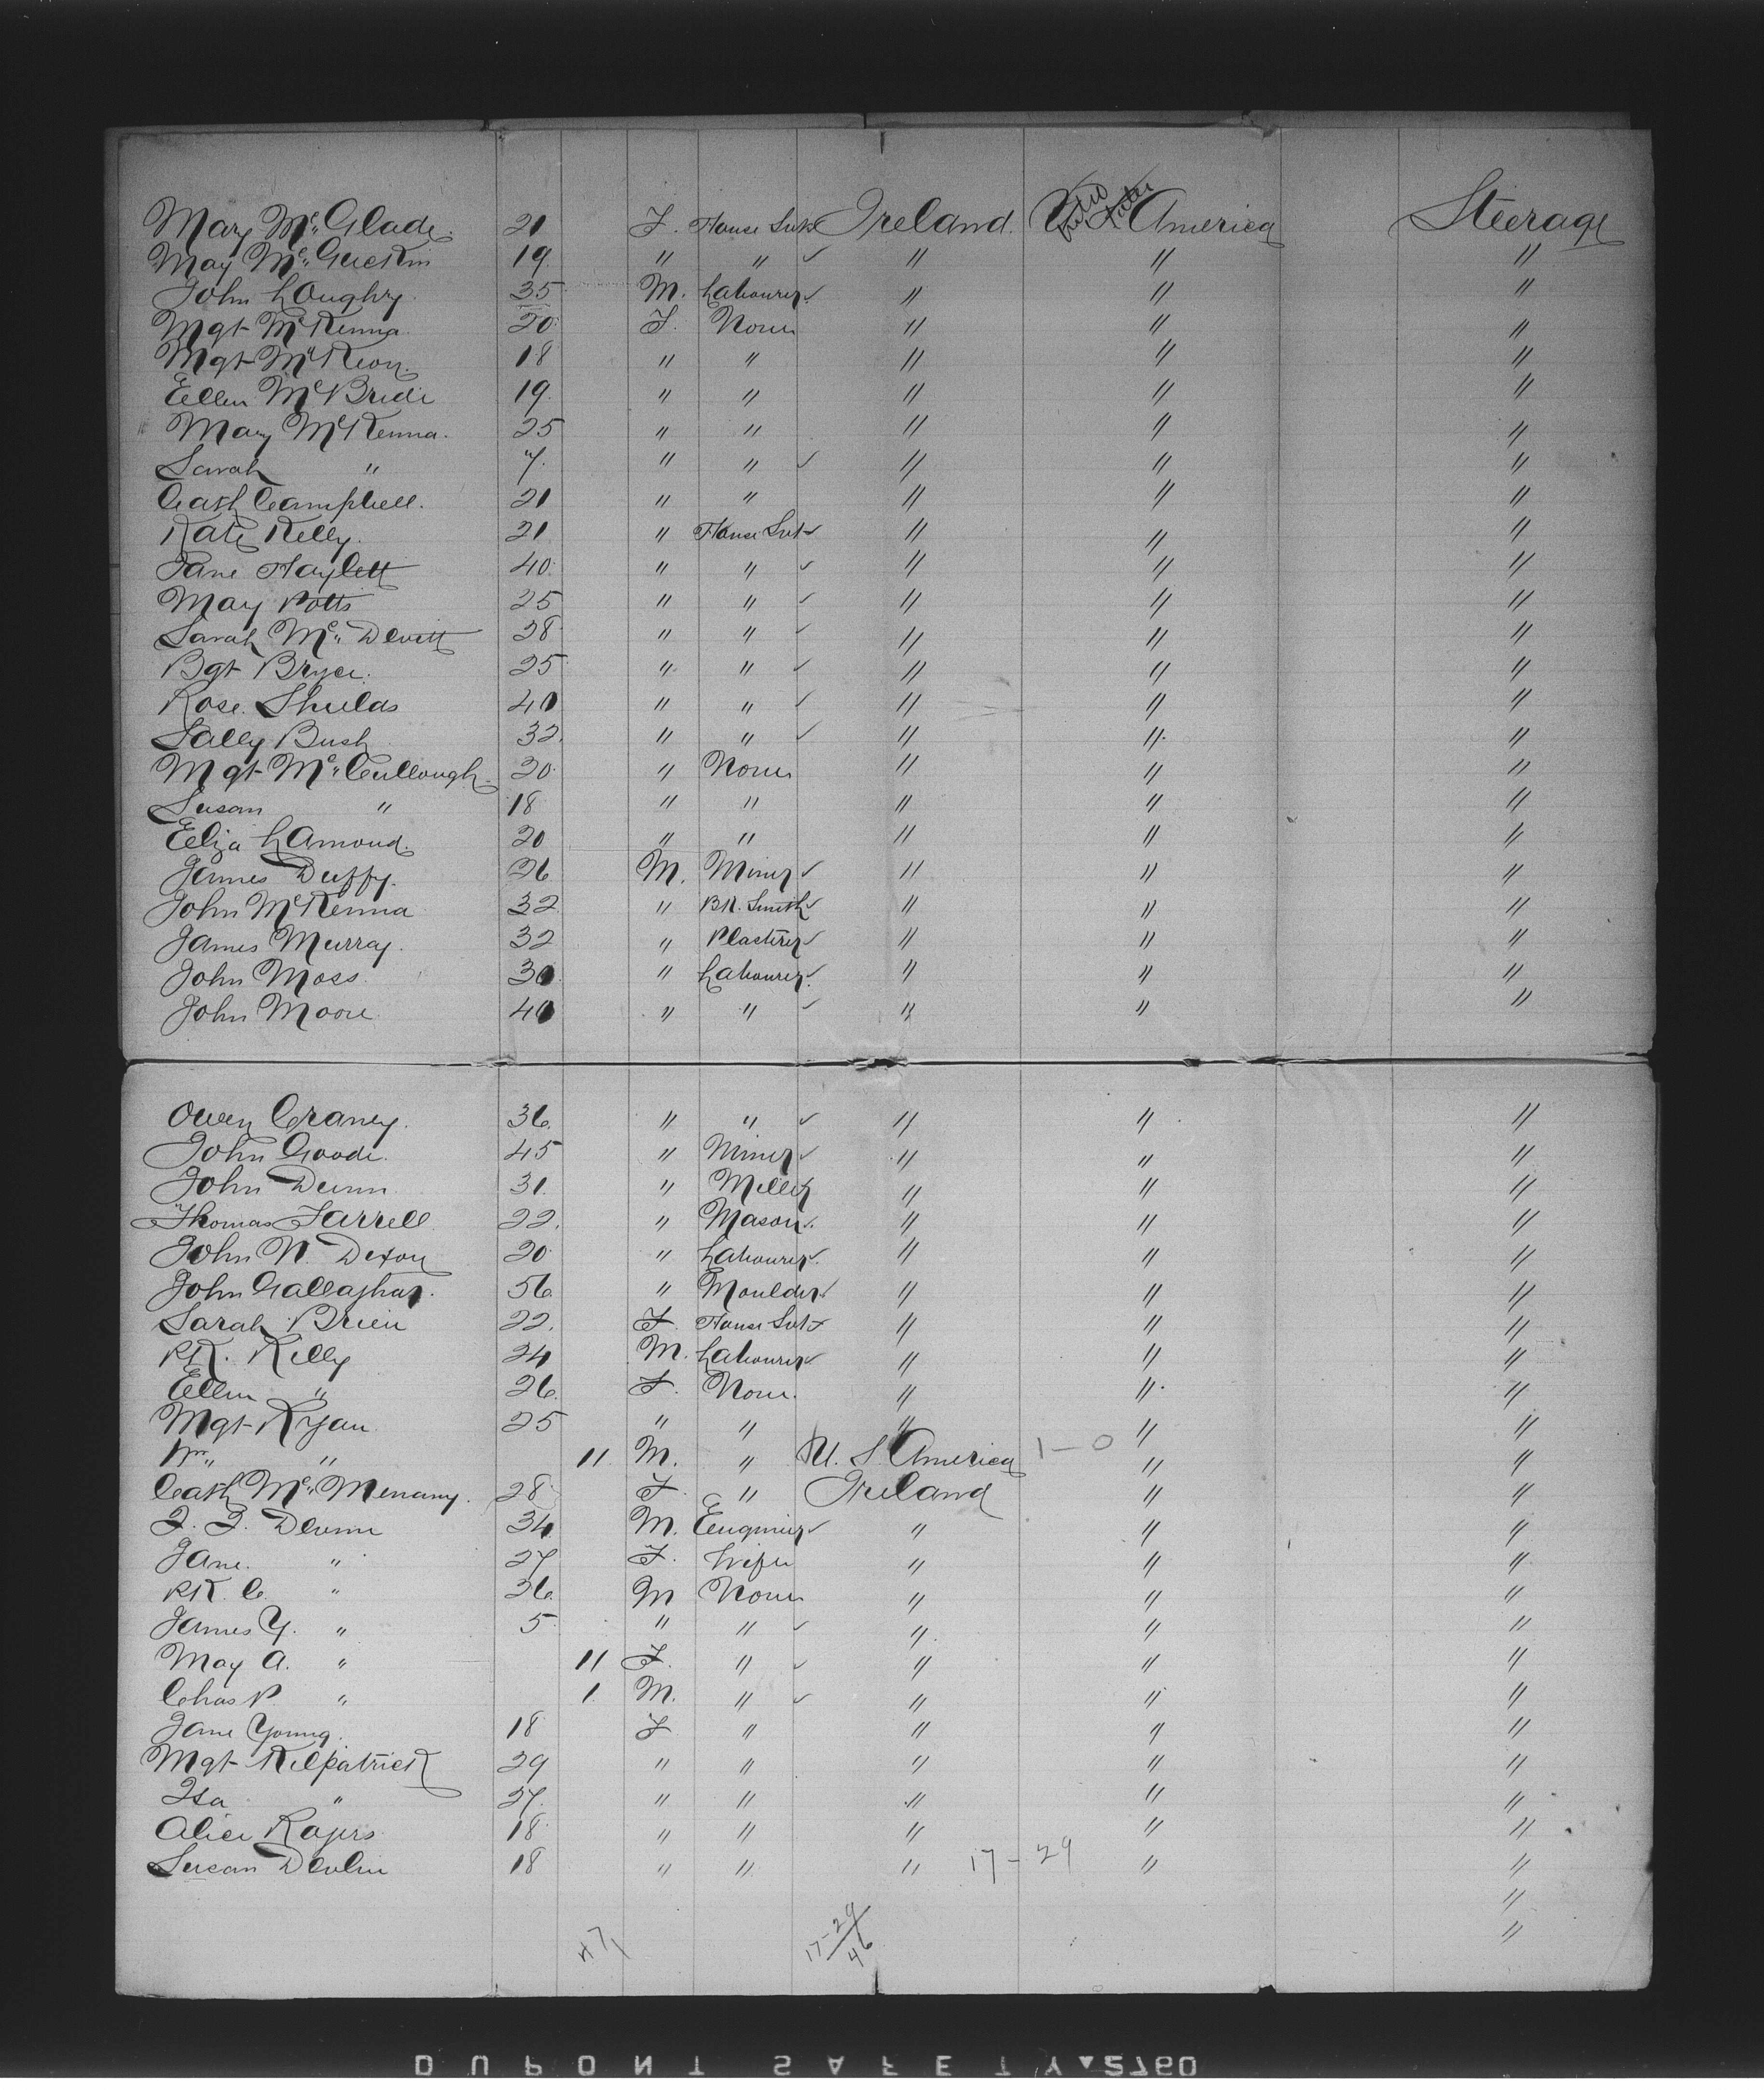 Mary McGlade 21 F. House Svt Ireland U S America Steerage
May McGuckin 19 " " " " "
John Loughry 35 M. Labourer " " "
Mgt McKenna 20 F. None " " "
Mgt McKeon 18 " " " " "
Ellen McBride 19 " " " " "
Mary McKenna 25 " " " " "
Sarah " 7 " " " " "
Cath Campbell 21 " " " " "
Kate Kelly 21 " House Svt " " "
Jane Haylett 40 " " " " "
May Potts 25 " " " " "
Sarah McDevitt 28 " " " " "
Bgt Bryce 25 " " " " "
Rose Shields 40 " " " " "
Sally Bush 32 " " " " "
Mgt McCullough 20 " None " " "
Susan " 18 " " " " "
Eliza Lamond 20 " " " " "
James Duffy 26 M. Miner " " "
John McKenna 32 " Bk. Smith " " "
James Murray 32 " Plasterer " " "
John Moss 30 " Labourer " " "
John Moore 40 " " " " "
Owen Craney 36 " " " " "
John Goode 45 " Miner " " "
John Dunn 31 " Miller " " "
Thomas Farrell 22 " Mason " " "
John N. Dixon 20 " Labourer " " "
John Gallagher 56 " Moulder " " "
Sarah Brien 22 F. House Svt " " "
Pk. Kelly 24 M. Labourer " " "
Ellen " 26 F. None " " "
Mgt Ryan 25 " " " " "
Wm " 11 M. " U. S America 1-0 " "
Cath McMenamy 28 F. " Ireland " "
Devine 34 M. Engineer " " "
Jane " 27 F. Wife " " "
Pk C. " 36 M None " " "
James Y. " 5 " " " " "
May A. " 11 F. " " " "
Chas P. " 1 M. " " " "
Jane Young 18 F " " " "
Mgt Kilpatrick 29 " " " " "
Isa " 27 " " " " "
Alice Rogers 18 " " " " "
Susan Devlin 18 " " " 17-29 " "
"
"
47 17-29
46
DUPONT SAFETY 2760